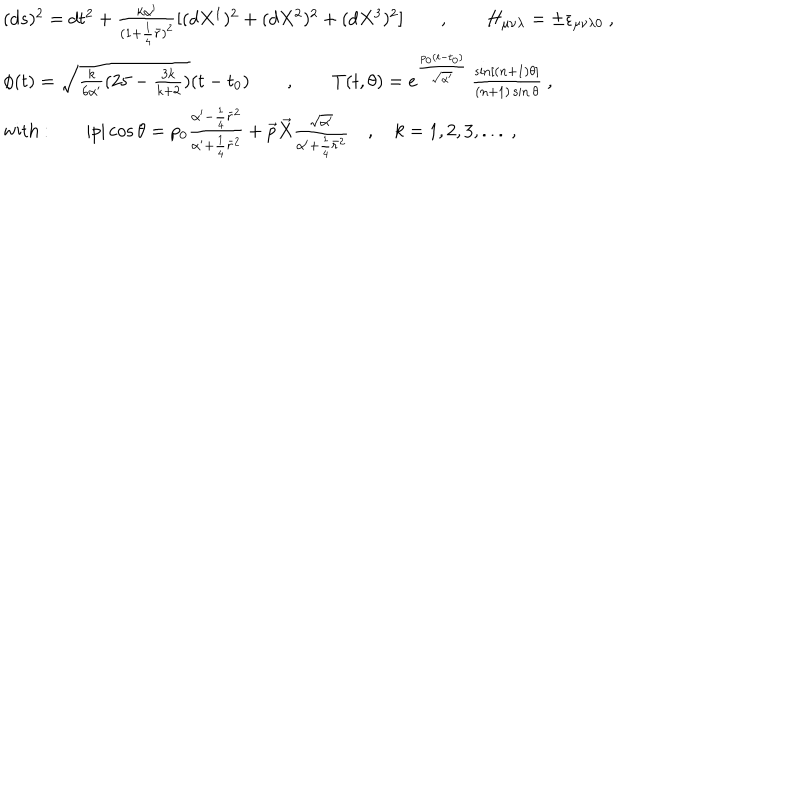 (ds)^2 = dt^2 + \frac{k\alpha'}{(1+\frac{1}{4}\bar{r})^2} [(dX^1)^2 + (dX^2)^2 + (dX^3)^2] , H_{\mu\nu\lambda} = \pm\epsilon_{\mu\nu\lambda 0} ,
\phi(t) = \sqrt{\frac{k}{6\alpha'}(25 - \frac{3k}{k+2})}(t - t_0) , T(t, \theta) = e^{\frac{p_0(t-t_0)}{\sqrt{\alpha'}}} \frac{\sin[(n+1)\theta]}{(n+1)\sin\theta} ,
with : |p| \cos\theta = p_0 \frac{\alpha' - \frac{1}{4}\bar{r}^2}{\alpha' + \frac{1}{4}\bar{r}^2} + \vec{p}\vec{X} \frac{\sqrt{\alpha'}}{\alpha' + \frac{1}{4}\bar{r}^2} , k = 1, 2, 3, ... ,